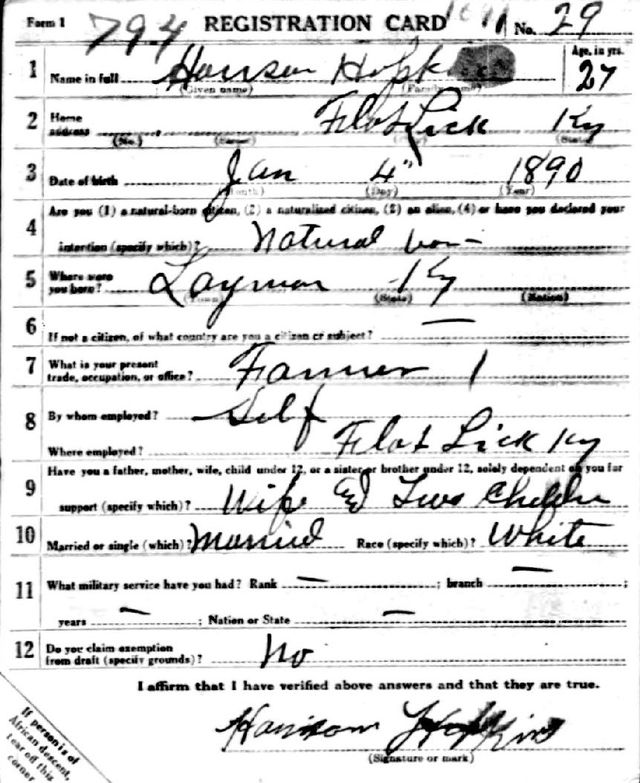 Form 1 794 REGISTRATION CARD No. 29
Age, in yrs.
1 Name in full Harrison Hopkins 27
(Given name) (Family name)
2 Home address Flat Lick Ky
(No.) (Street) (City) (State)
3 Date of birth Jan 4" 1890
(Month) (Day) (Year)
4 Are you (1) a natural-born citizen, (2) a naturalized citizen, (3) an alien, (4) or have you declared your
intention (specify which)? Natural born
5 Where were you born? Layman Ky
(Town) (State) (Nation)
6 If not a citizen, of what country are you a citizen or subject? —
7 What is your present trade, occupation, or office? Farmer 1
8 By whom employed? Self
Where employed? Flat Lick Ky
9 Have you a father, mother, wife, child under 12, or a sister or brother under 12, solely dependent on you for
support (specify which)? Wife & Two Children
10 Married or single (which)? Married Race (specify which)? White
11 What military service have you had? Rank — ; branch — ;
years — ; Nation or State —
12 Do you claim exemption from draft (specify grounds)? No
I affirm that I have verified above answers and that they are true.
Harrison Hopkins
(Signature or mark)
If person is of
African descent,
tear off this
corner